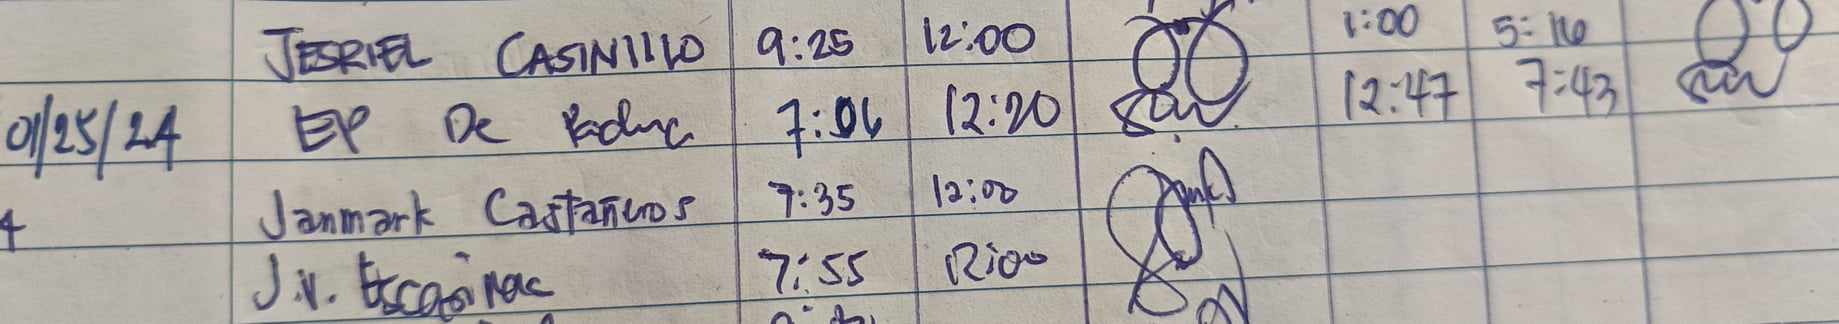 JESRIEL CASINILLO 9:25 12:00 1:00 5:16
01/25/24 EP De 7:06 12:20 12:47 7:43
4 Janmark Castañeros 7:35 12:00
J.V. 7:55